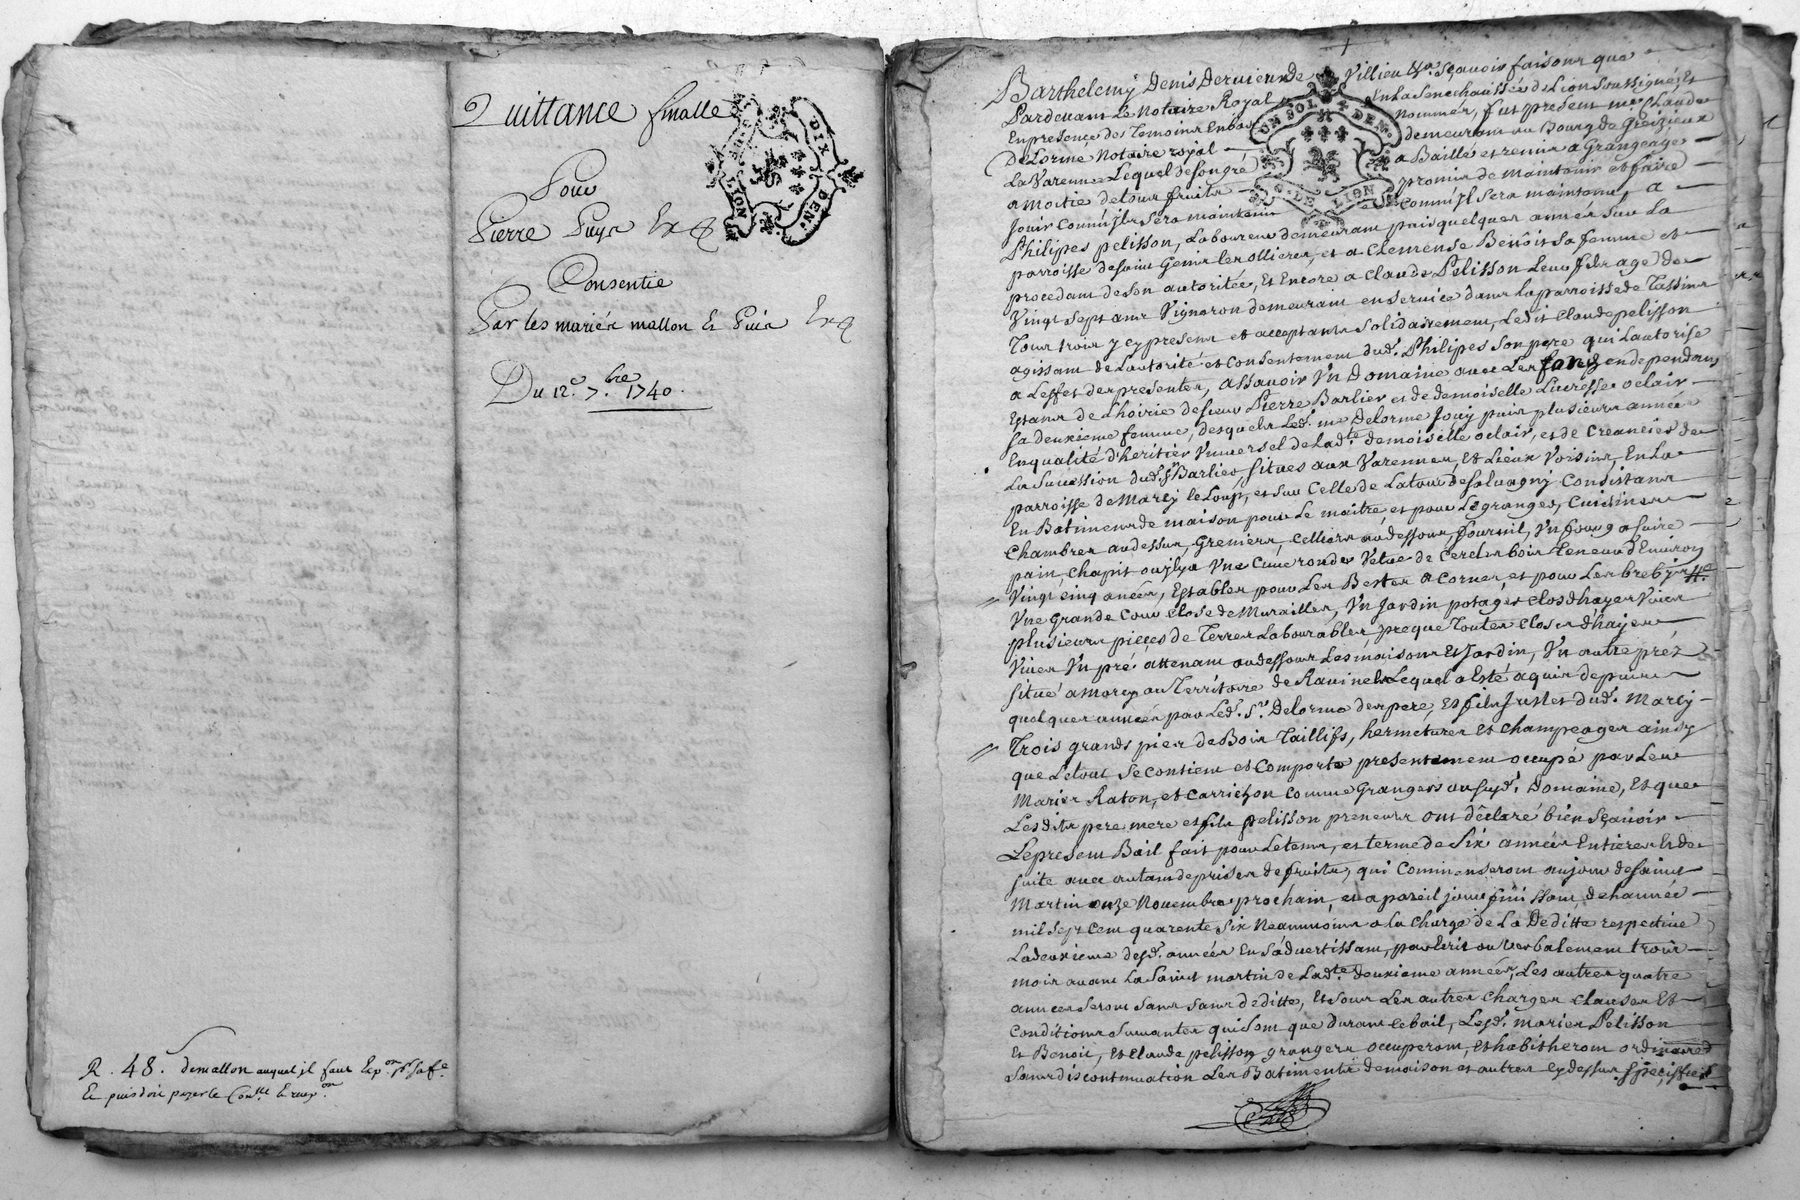 Quittance finalle
Pour
Pierre Puys
Consentie
Par les mariés mallon et Puis
Du 12e 7.bre 1740.
R. 48. demallon auquel il faut
et puis doit payer le
GN. LION
DIX DEN.
UN SOL 4 DEN.
G. DE LION
Barthelemy Denis Dervieu de Villieu &a. Sçavoir faisons que
Pardevant Le Notaire Royal En la Senechaussée de Lion Soussigné, Et
En presence des Temoins En bas nommés, fut present me. Claude
DeLorme Notaire royal demeurant au Bourg de Greizieux
La Varenne Lequel de son gré a Baillé et remis a Grangeage
a moitié de tous fruits promis de maintenir et faire
Jouir comm'jl sera maintenu
Philipes pelisson, Laboureur demeurant puis quelques années Sur La
parroisse de saint Genis les ollieres, et a Clemense Benoist sa femme et
procedant de son autoritée, et Encore a Claude Pelisson Leur fils agé de
Vingt sept ans Vigneron demeurant en service dans la parroisse de Tassins
Tous trois y cy presens et acceptants solidairement, Ledit Claude pelisson
agissant de L'autorité et consentement dud. Philipes son pere qui L'autorise
a L'effet des presentes, assavoir Vn Domaine avec Les fonds en dependans
Estans de L'hoirie de sieur Pierre Barlier et de demoiselle Lucresse oclair
sa deuxieme femme, desquels Led. me Delorme Jouy puis plusieurs années
En qualité d'heritier Vniversel de Lad.te demoiselle oclair, et de Creancier de
La Succession dud. Sr Barlier, situés aux Varennes, Et Lieux Voisins, En La
parroisse de Marcy le Loup, et sur Celle de Latour de salvagny Consistans
En Batimens de maison pour Le maitre et pour Le granger, Cuisines
Chambres au dessus, Greniers, Celliers au dessous, fournil, Vn four a faire
pain, Chapit ou jlya Vne Cuve ronde Velue de Cercles bois tenant d'Environ
Vingt cinq anées, Estables pour Les Bestes a Cornes, et pour Les brebis
Vne grande Cour Close de Murailles, Vn Jardin potager clos d'hayes Vives
plusieurs pieces de Terres Labourables presque Toutes closes d'hayes
Vives Vn pré attenant au dessous Les maisons Et Jardin, Vn autre préz
situé a morcy au Territoire de Ravinel Lequel a Esté aquis depuis
quelques années par Led. Sr. Delorme des pere, et fils Justet dud. Marcy
Trois grands pies de Bois Taillifs, hermetures et champeages ainsy
que Letout se contient et Comporte presentement occupé par Les
Mariés Raton, et Carrichon comme Grangers au susd. Domaine, Et que
Lesdits pere mere et fils pelisson preneurs ont déclaré bien Sçavoir
Le present Bail fait pour Le tems, et terme de Six années Entieres Et de
suite avec autant de prises de fruits, qui Commenseront au jour de saint
Martin onze Novembre prochain, et a pareil jour finissant, de L'année
mil sept cent quarente six Neanmoins a la Charge de La Deditte respective
La deuxieme desd. années En s'advertissant, par Ecrit ou Verbalement trois
mois avant La Saint martin de Lad.te deuxieme année, Les autres quatre
années seront sans deditte, Et sous Les autres Charges clauses Et
Conditions Suivantes qui sont que durant Le bail, Lesd. mariés Pelisson
Et Benoit, et Claude pelisson grangers occuperont, Et habitheront ordinairemt
sans discontinuation Les Batiments de maison et autres cy dessus speciffiés